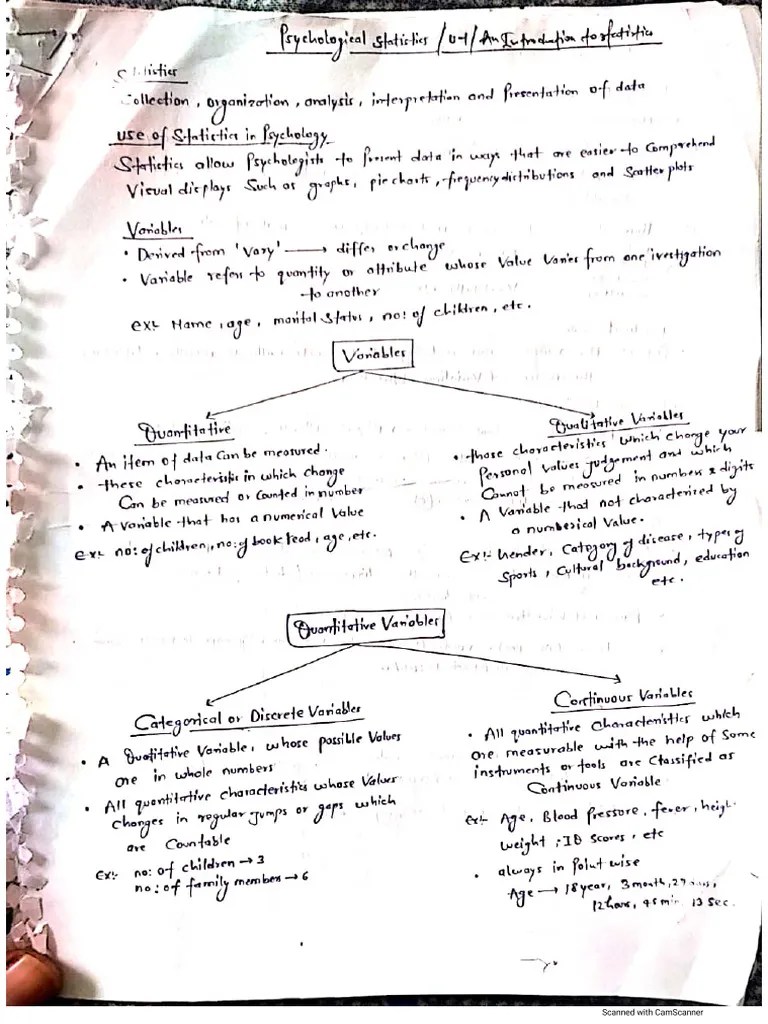 Psychological Statistics / U-1 / An Introduction to statistics
Statistics
Collection, organization, analysis, interpretation and Presentation of data
use of Statistics in Psychology
Statistics allow Psychologists to Present data in ways that are easier to Comprehend
Visual displays Such as graphs, pie charts, frequency distributions and Scatter plots
Variables
• Derived from 'Vary' → differ or change
• Variable refers to quantity or attribute whose Value Varies from one ivestigation
to another
ex:- Name, age, marital status, no: of children, etc.
Variables
Quantitative
• An item of data Can be measured.
• these characteristic in which change
Can be measured or Counted in number
• A variable that has a numerical Value
ex:- no: of children, no: of book read, age, etc.
Qualitative Variables
• those characteristics which change your
Personal values judgement and which
Cannot be measured in numbers & digits
• A Variable that not characterized by
a numberical Value.
Ex:- Gender, Category of disease, types of
Sports, Cultural background, education
etc.
Quantitative Variables
Categorical or Discrete Variables
• A Quatitative Variable, whose possible Values
are in whole numbers
• All quantitative characteristics whose Values
changes in regular jumps or gaps which
are Countable
Ex:- no: of children → 3
no: of family member → 6
Continuous Variables
• All quantitative characteristics which
are measurable with the help of Some
instruments or tools are Classified as
Continuous Variable
Ex:- Age, Blood Pressure, fever, heigh
weight, IQ Scores, etc
• always in Point wise
Age → 18 year, 3 month, 27
12 hours, 45 min, 13 Sec.
Scanned with CamScanner